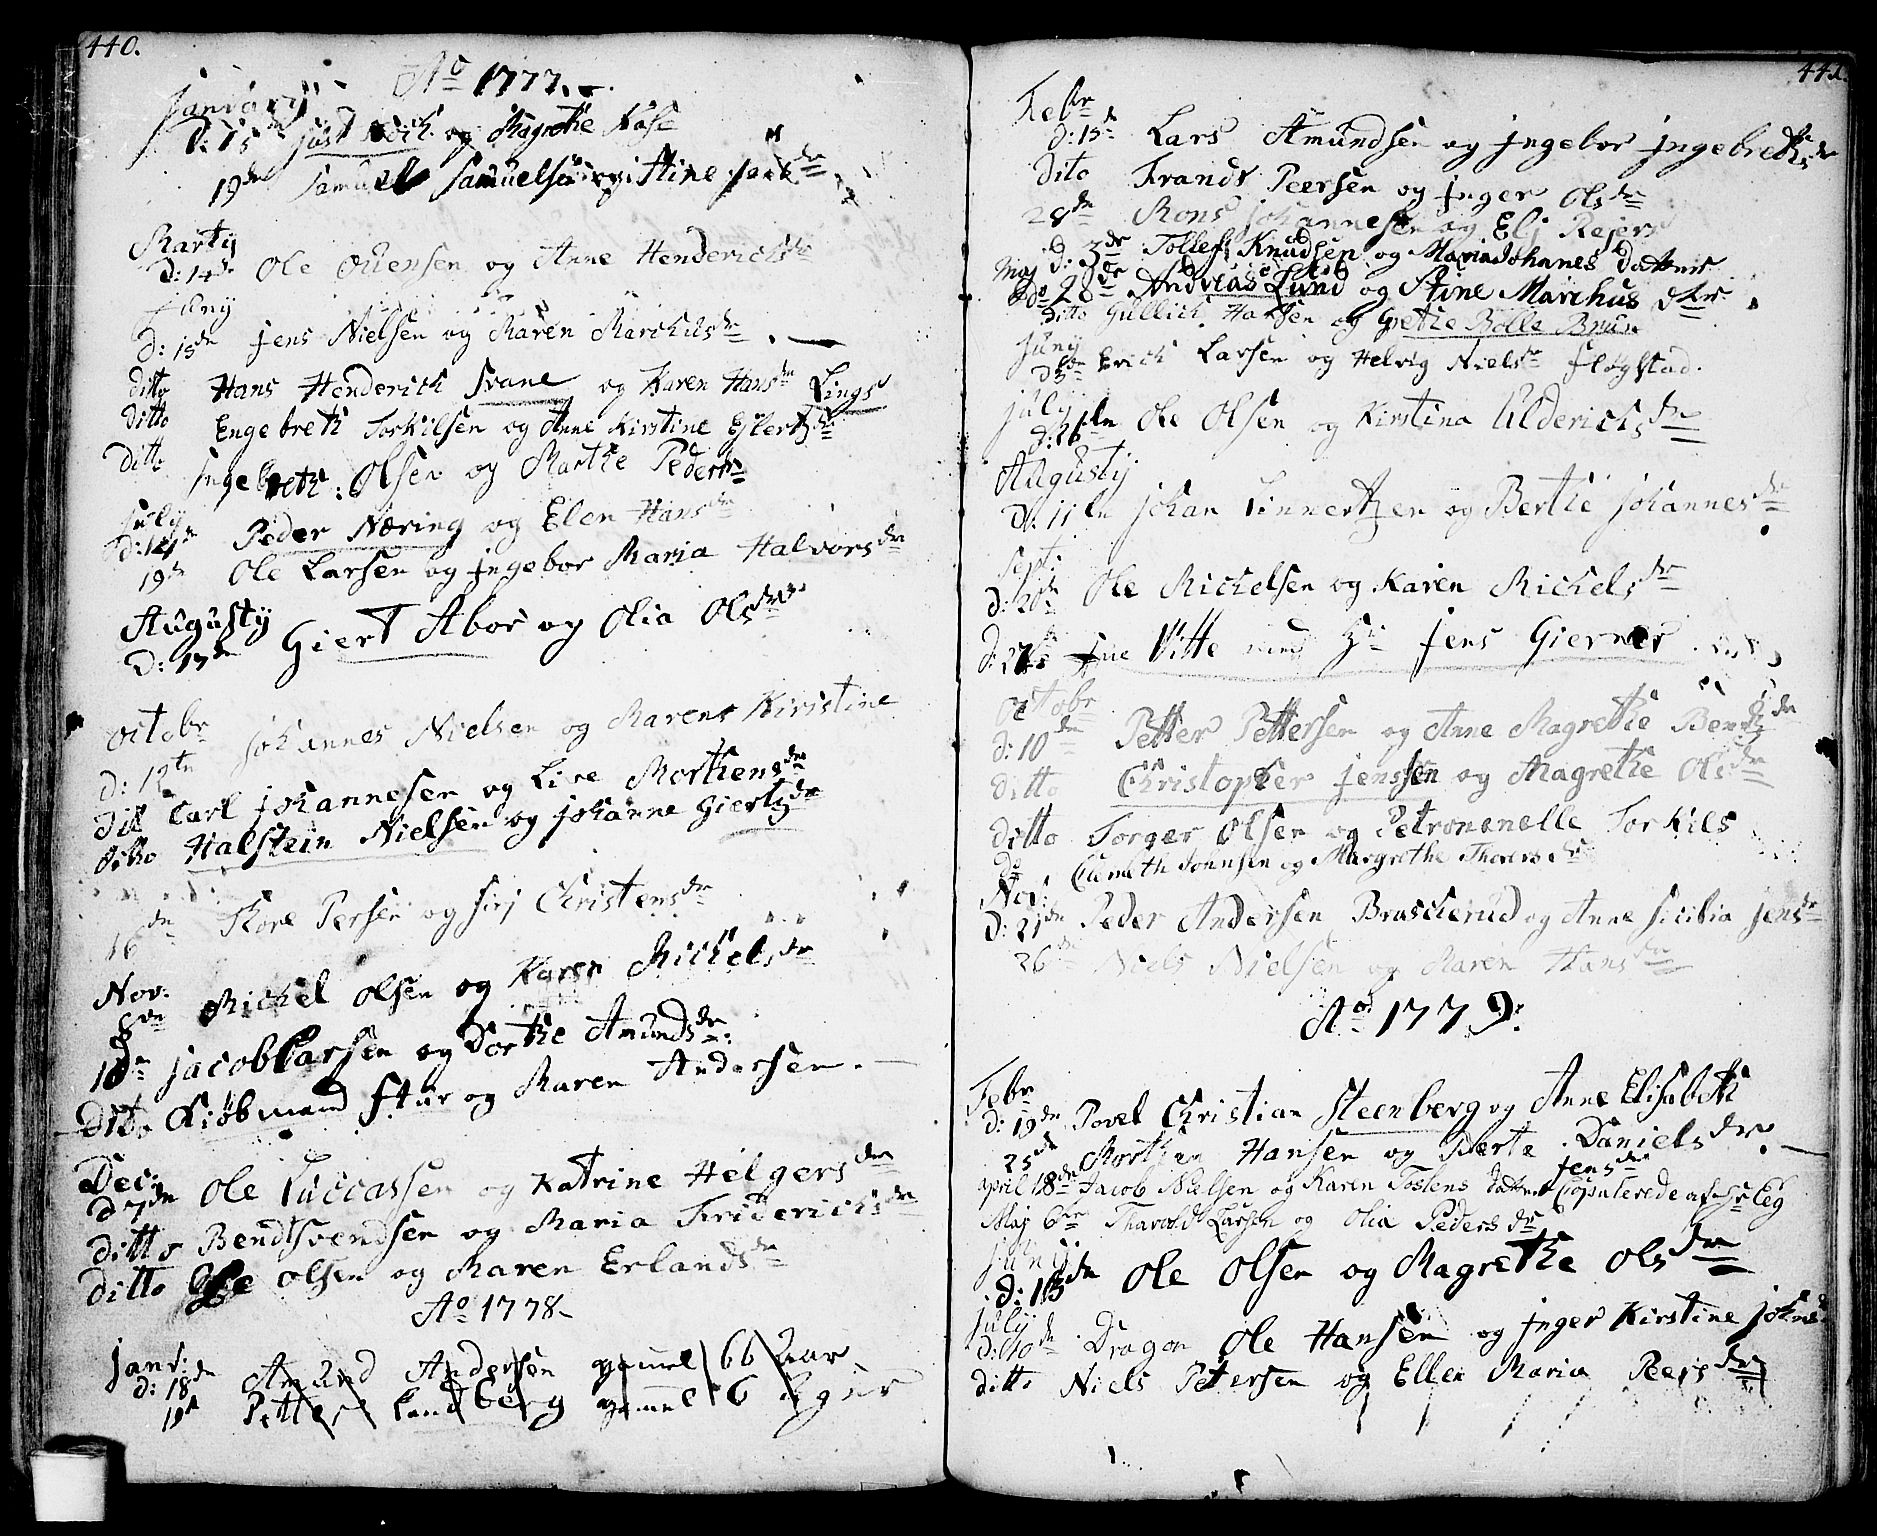 440.
Ao 1777.
January
d: 15 Just Koch og Magrethe Kose
19de Samuel Samuelsen og Stine
Marty
d: 14de Ole Ouensen og Anne Hendericksdr
Juny
d: 15de Jens Nielsen og Maren Marchusdr
ditto Hans Henderich Svane og Karen Hansdr Lings
ditto Engebreth Torkilsen og Anne Kirstine Eilertzdr
ditto Ingebreth Olsen og Marthe Pedersdr
July
d: 14de Peder Næring og Elen Hansdr
19de Ole Larsen og Ingebor Maria Halvorsdr
Augusty
d: 17de Giert Abor og Olia Olsdr
Octobr
d: 12te Johannes Nielsen og Maren Kirstine
dit Carl Johannesen og Line Morthensdr
ditto Halstein Nielsen og Johanne Giertzdr
16de Thore Persen og Sirj Christensdr
Nov:
8de Michel Olsen og Karen Michelsdr
10de Jacob Larsen og Dorthe Amundsdr:
dito Kiøbmand Stur og Maren Andersen.
Dec:
d 7de Ole Luccassen og Katrine Helgersdr
ditto Bendt Svendsen og Maria Fridericksdr
ditto Ole Olsen og Maren Erlandsdr
Ao 1778
Janv:
d: 18de Amund Andersen gammel 66 Aar
19d Petter Landberg gammel 6 Uger
441.
Febr
d: 15de Lars Amundsen og Ingebor Ingebrethsdr
dito Frands Peersen og Inger Olsdr
28de Mons Johannesen og Elj Rejers
d: 3de Tollef Knudsen og Maria Johnes datter
Maj
do 28de Andreas Lund og Stine Marchus dtr.
ditto Gullich Hansen og Grethe Bolle Brun
Juny
d 5te Erich Larsen og Helvig Nielsdr Fløgstad.
July
d: 16de Ole Olsen og Kirstina Ulderichsdr
Augusty
d: 11te Johan Linnertzen og Berthe Johannesdr
Sept:
d: 20de Ole Michelsen og Karen Michelsdr
d: 27de Jne Vitte med Hr Jens Gierner
Octobr
d: 10de Petter Pettersen og Anne Magrethe Bentzdr
ditto Christopher Jenssen og Magrethe Olsdr
ditto Torger Olsen og Petronenelle Torkils
do Gumeth Jonnsen og Margrethe Thorersdr
Nov:
d: 21de Peder Andersen Brascherud og Anne Sicilia Jensdr
26de Niels Nielsen og Maren Hansdr
Ao 1779:
Febr
d: 19de Povel Christian Steenberg og Anne Elisabeth
25de Morthen Hansen og Berte Danielsdr. Jensdr
april 18de Jacob Nielsen og Karen Tostens datter Copulerede af Hr Leg
Maj 6te Tharald Larsen og Olia Pedersdr
Juny
d: 13de Ole Olsen og Magrethe Olsdr
July
d: 10de Dragon Ole Hansen og Inger Kirstine Johnsd
ditto Niels Petersen og Ellen Maria Peersdr